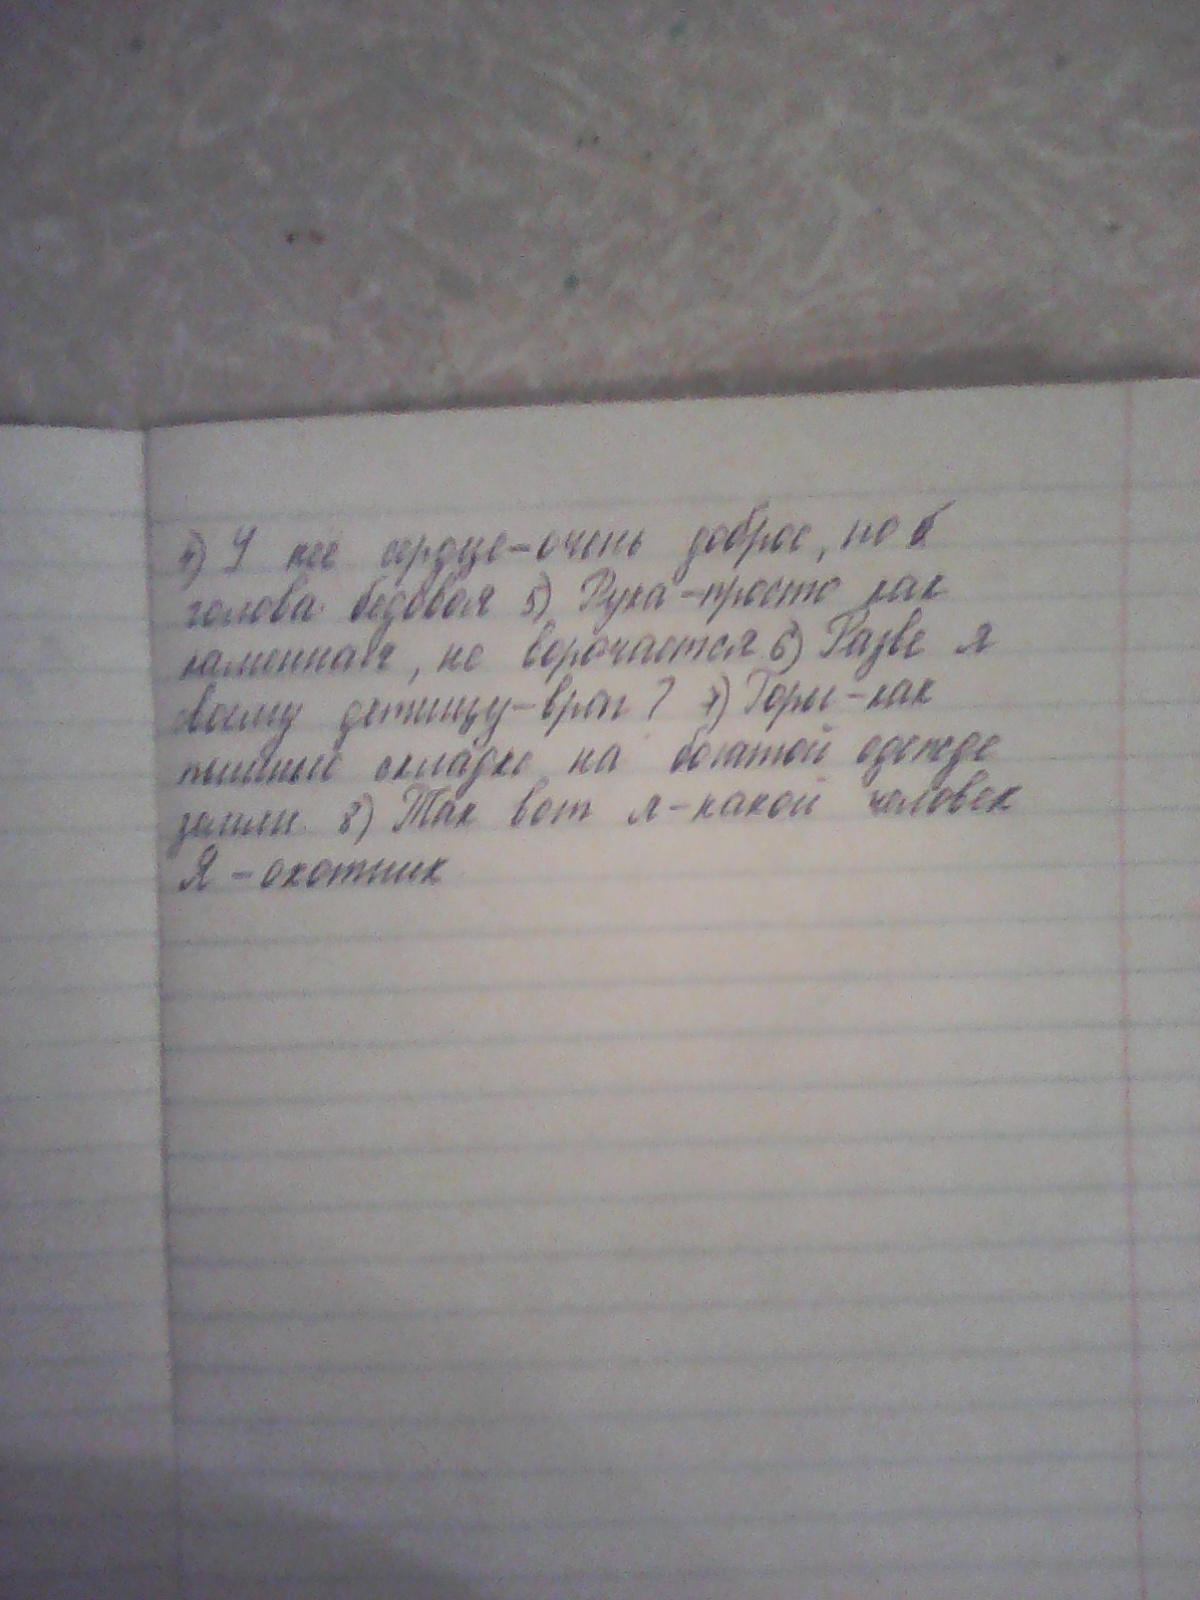 4) У неё сердце-очень доброе, но б
голова бедовая 5) Рука-просто как
каменная, не ворочается 6) Разве я
своему детищу-враг? 7) Горы-как
пышные складке на богатой одежде
земли. 8) Так вот я-какой человек
Я - охотник